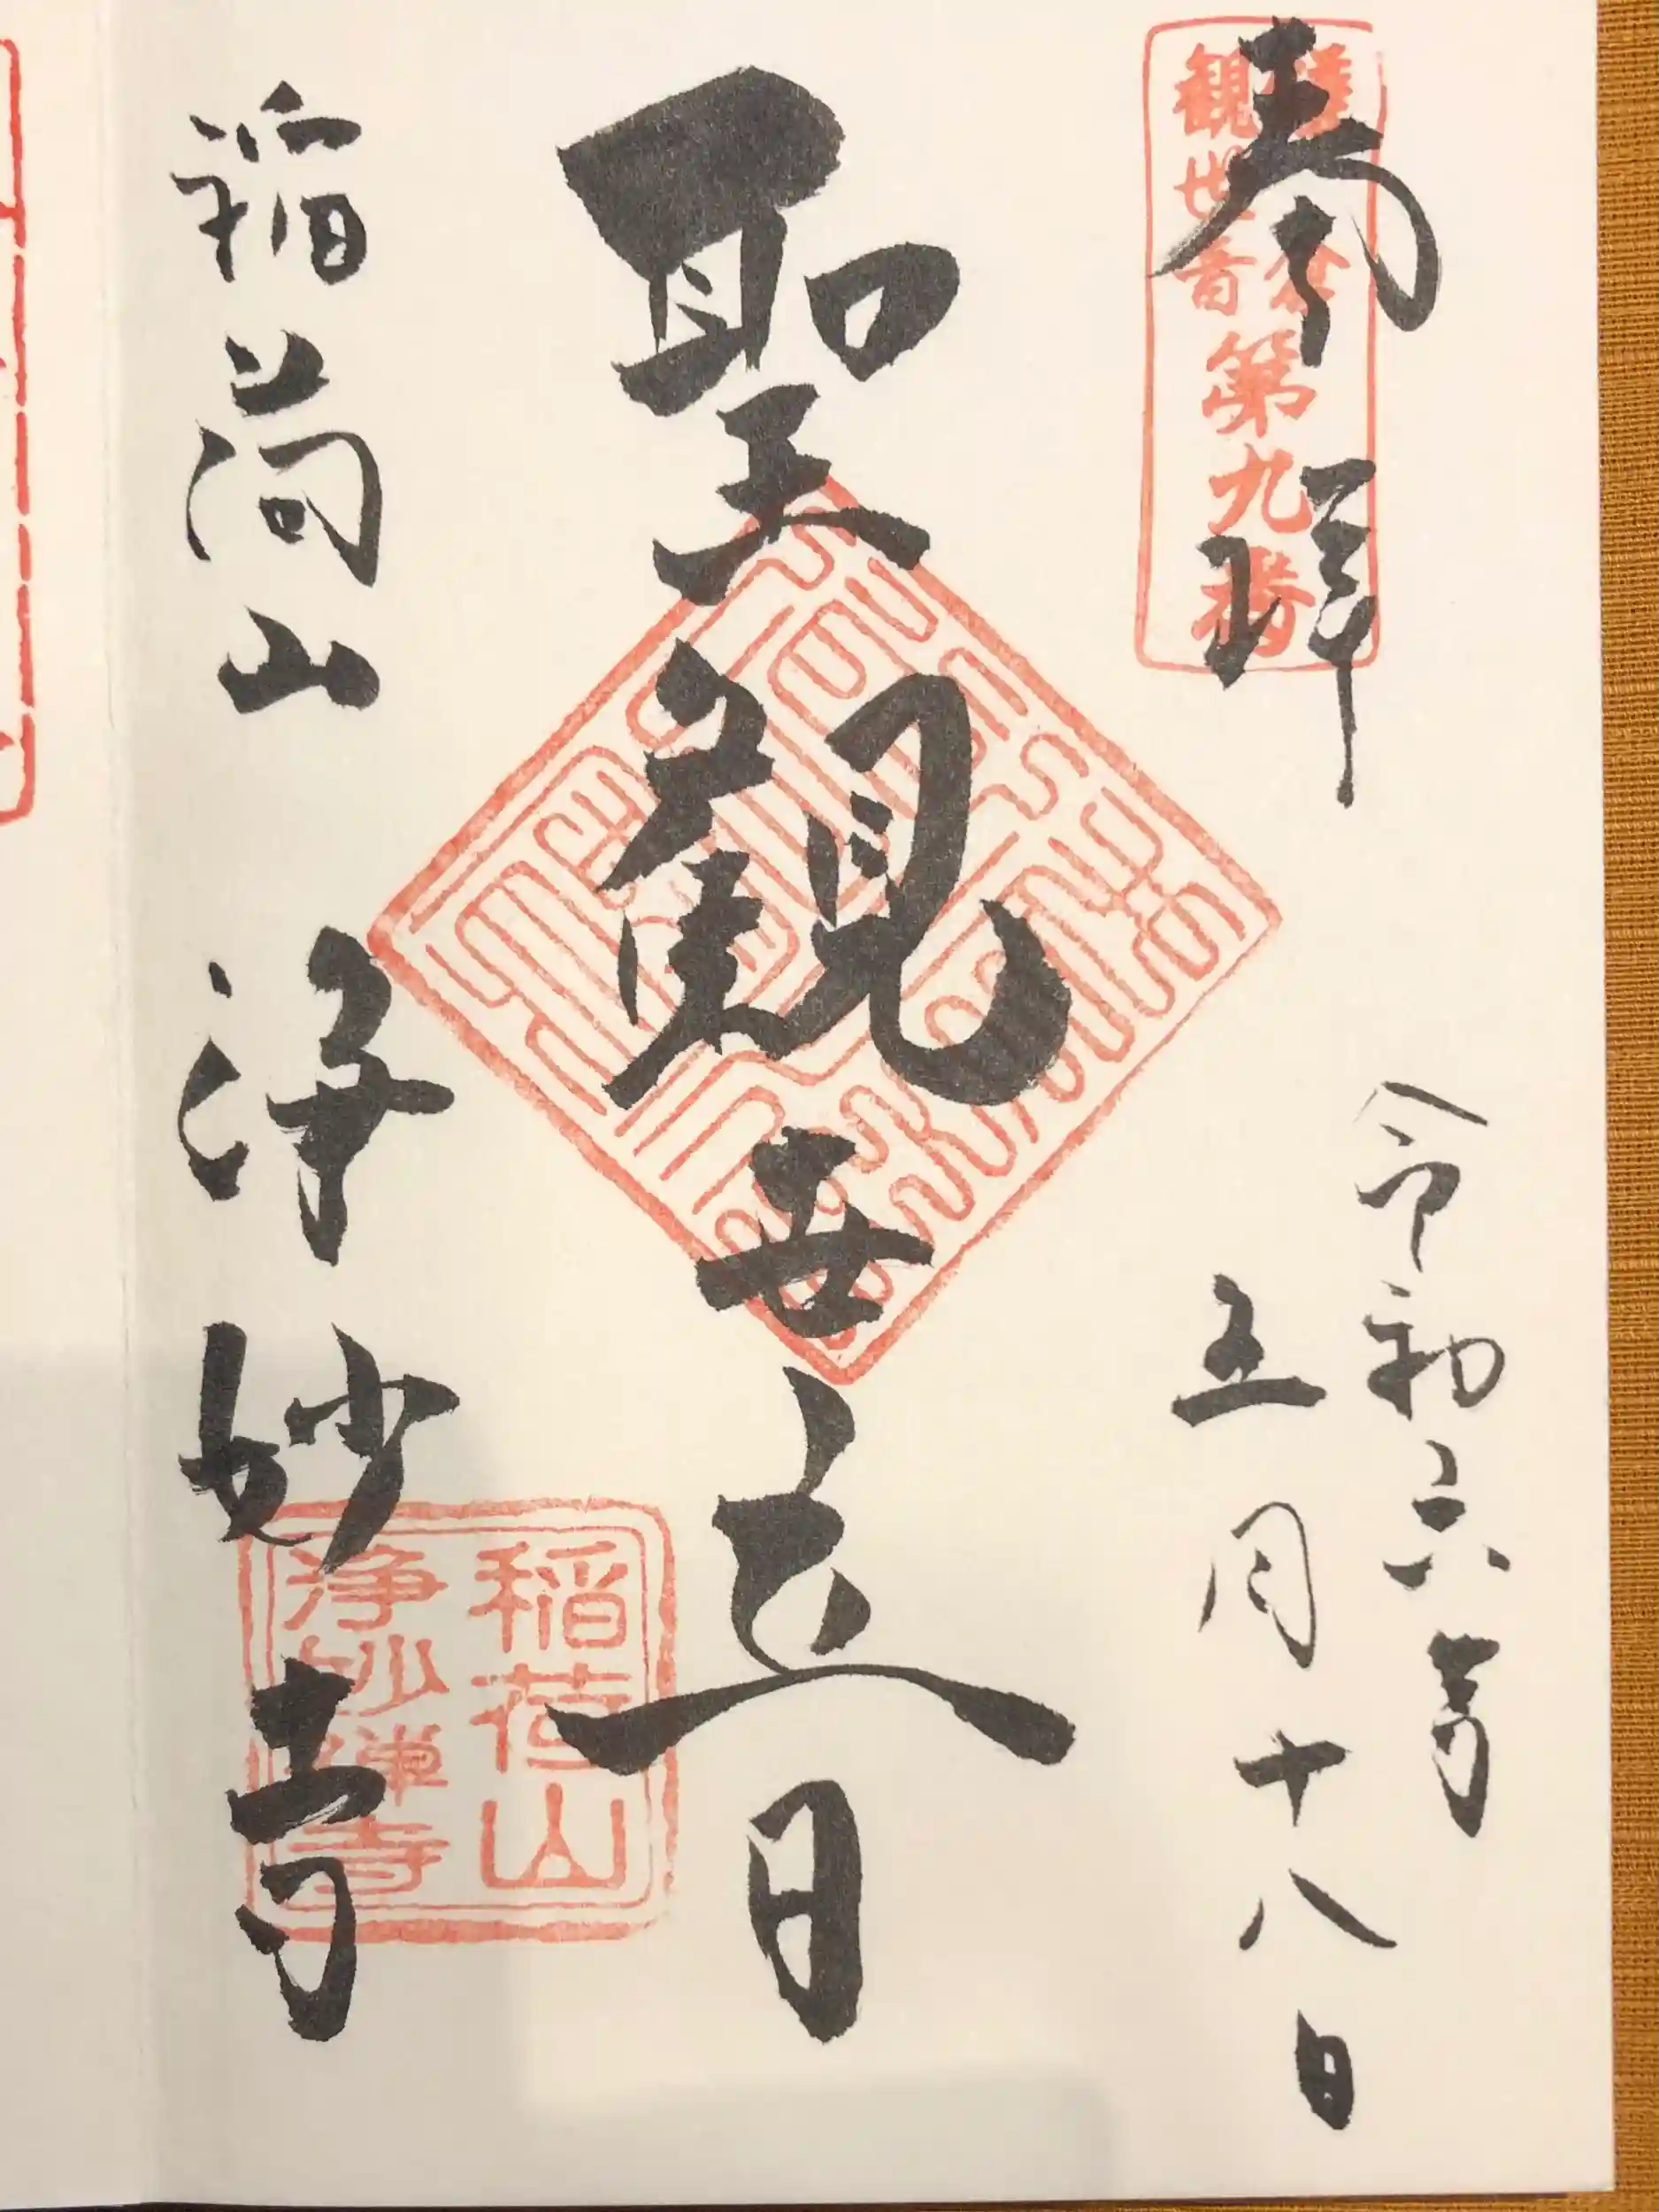 奉拝
鎌倉
観世音
第九番
令和六年
五月十八日
聖観世音
稲荷山 浄妙寺
稲荷山
浄妙禅寺